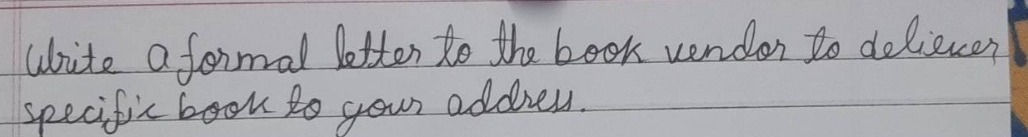 Write a formal letter to the book vendor to deliever
specific book to your address.